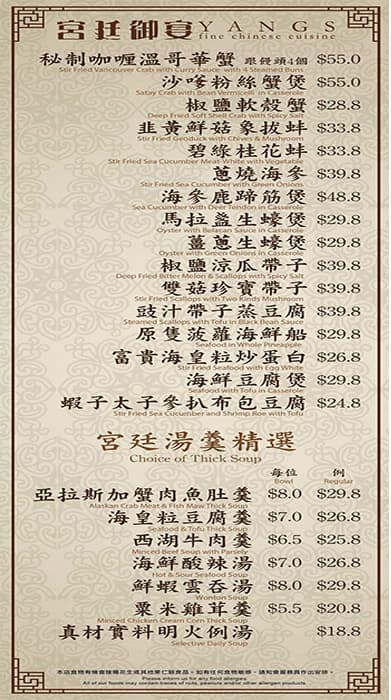 宮廷御宴 YANGS
fine chinese cuisine
秘制咖喱溫哥華蟹 跟饅頭4個 $55.0
Stir Fried Vancouver Crab with Curry Sauce with 4 Steamed Buns
沙嗲粉絲蟹煲 $55.0
Satay Crab with Bean Vermicelli in Casserole
椒鹽軟殼蟹 $28.8
Deep Fried Soft Shell Crab with Spicy Salt
韭黃鮮菇象拔蚌 $33.8
Stir Fried Geoduck with Chives & Mushroom
碧綠桂花蚌 $33.8
Stir Fried Sea Cucumber Meat White with Vegetable
蔥燒海參 $39.8
Stir Fried Sea Cucumber with Green Onions
海參鹿蹄筋煲 $48.8
Sea Cucumber with Deer Tendon in Casserole
馬拉盞生蠔煲 $29.8
Oyster with Belacan Sauce in Casserole
薑蔥生蠔煲 $29.8
Oyster with Green Onions in Casserole
椒鹽涼瓜帶子 $39.8
Deep Fried Bitter Melon & Scallops with Spicy Salt
雙菇珍寶帶子 $39.8
Stir Fried Scallops with Two Kinds Mushroom
豉汁帶子蒸豆腐 $39.8
Steamed Scallops with Tofu in Black Bean Sauce
原隻菠蘿海鮮船 $29.8
Seafood in Whole Pineapple
富貴海皇粒炒蛋白 $26.8
Stir Fried Seafood with Egg White
海鮮豆腐煲 $29.8
Seafood with Tofu in Casserole
蝦子太子參扒布包豆腐 $24.8
Stir Fried Sea Cucumber and Shrimp Roe with Tofu
宮廷湯羹精選
Choice of Thick Soup
每位 例
Bowl Regular
亞拉斯加蟹肉魚肚羹 $8.0 $29.8
Alaskan Crab Meat & Fish Maw Thick Soup
海皇粒豆腐羹 $7.0 $26.8
Seafood & Tofu Thick Soup
西湖牛肉羹 $6.5 $25.8
Minced Beef Soup with Parsely
海鮮酸辣湯 $7.0 $26.8
Hot & Sour Seafood Soup
鮮蝦雲吞湯 $8.0 $29.8
Wonton Soup
粟米雞茸羹 $5.5 $20.8
Minced Chicken Cream Corn Thick Soup
真材實料明火例湯 $18.8
Selective Daily Soup
本店食物有機會接觸花生或其他果仁類食品。如有任何食物敏感，請知會服務員作出安排。
Please inform us for any food allergies.
All of our foods may contain traces of nuts, peanuts and/or other allergen products.